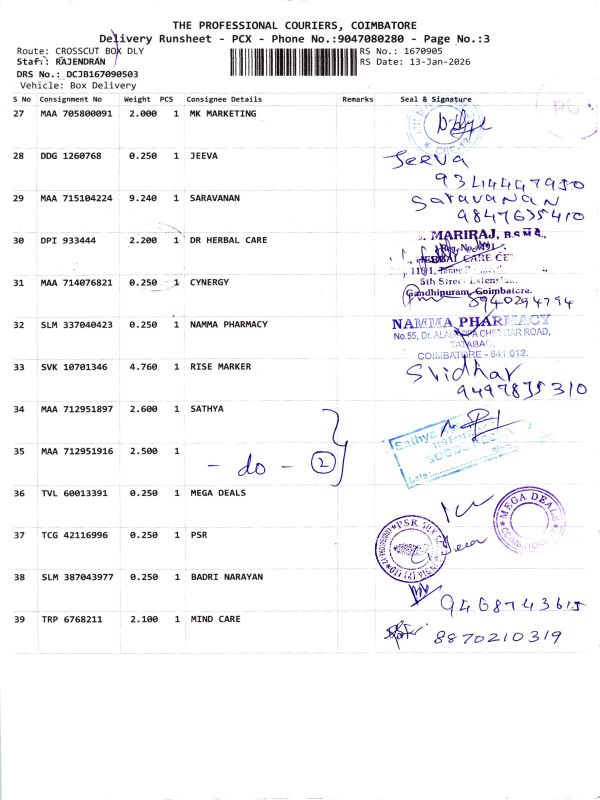 THE PROFESSIONAL COURIERS, COIMBATORE
Delivery Runsheet - PCX - Phone No.:9047080280 - Page No.:3
Route: CROSSCUT BOX DLY
RS No.: 1670905
Staff: RAJENDRAN
RS Date: 13-Jan-2026
DRS No.: DCJB167090503
Vehicle: Box Delivery
S No Consignment No Weight PCS Consignee Details Remarks Seal & Signature
27 MAA 705800091 2.000 1 MK MARKETING
28 DDG 1260768 0.250 1 JEEVA Jeeva
9344447950
29 MAA 715104224 9.240 1 SARAVANAN Saravanan
9847635410
30 DPI 933444 2.200 1 DR HERBAL CARE
MARIRAJ, B.S.M.S.,
HERBAL CARE
5th Street Extension,
Gandhipuram, Coimbatore.
31 MAA 714076821 0.250 1 CYNERGY 8940294794
32 SLM 337040423 0.250 1 NAMMA PHARMACY
NAMMA PHARMACY
No:55, Dr. ROAD,
TATABAD,
COIMBATORE - 641 012.
33 SVK 10701346 4.760 1 RISE MARKER Sridhar
9497835310
34 MAA 712951897 2.600 1 SATHYA
Sathya
35 MAA 712951916 2.500 1
- do - 2
36 TVL 60013391 0.250 1 MEGA DEALS
MEGA DEALS
37 TCG 42116996 0.250 1 PSR
PSR
38 SLM 387043977 0.250 1 BADRI NARAYAN
9408743615
39 TRP 6768211 2.100 1 MIND CARE
8870210319